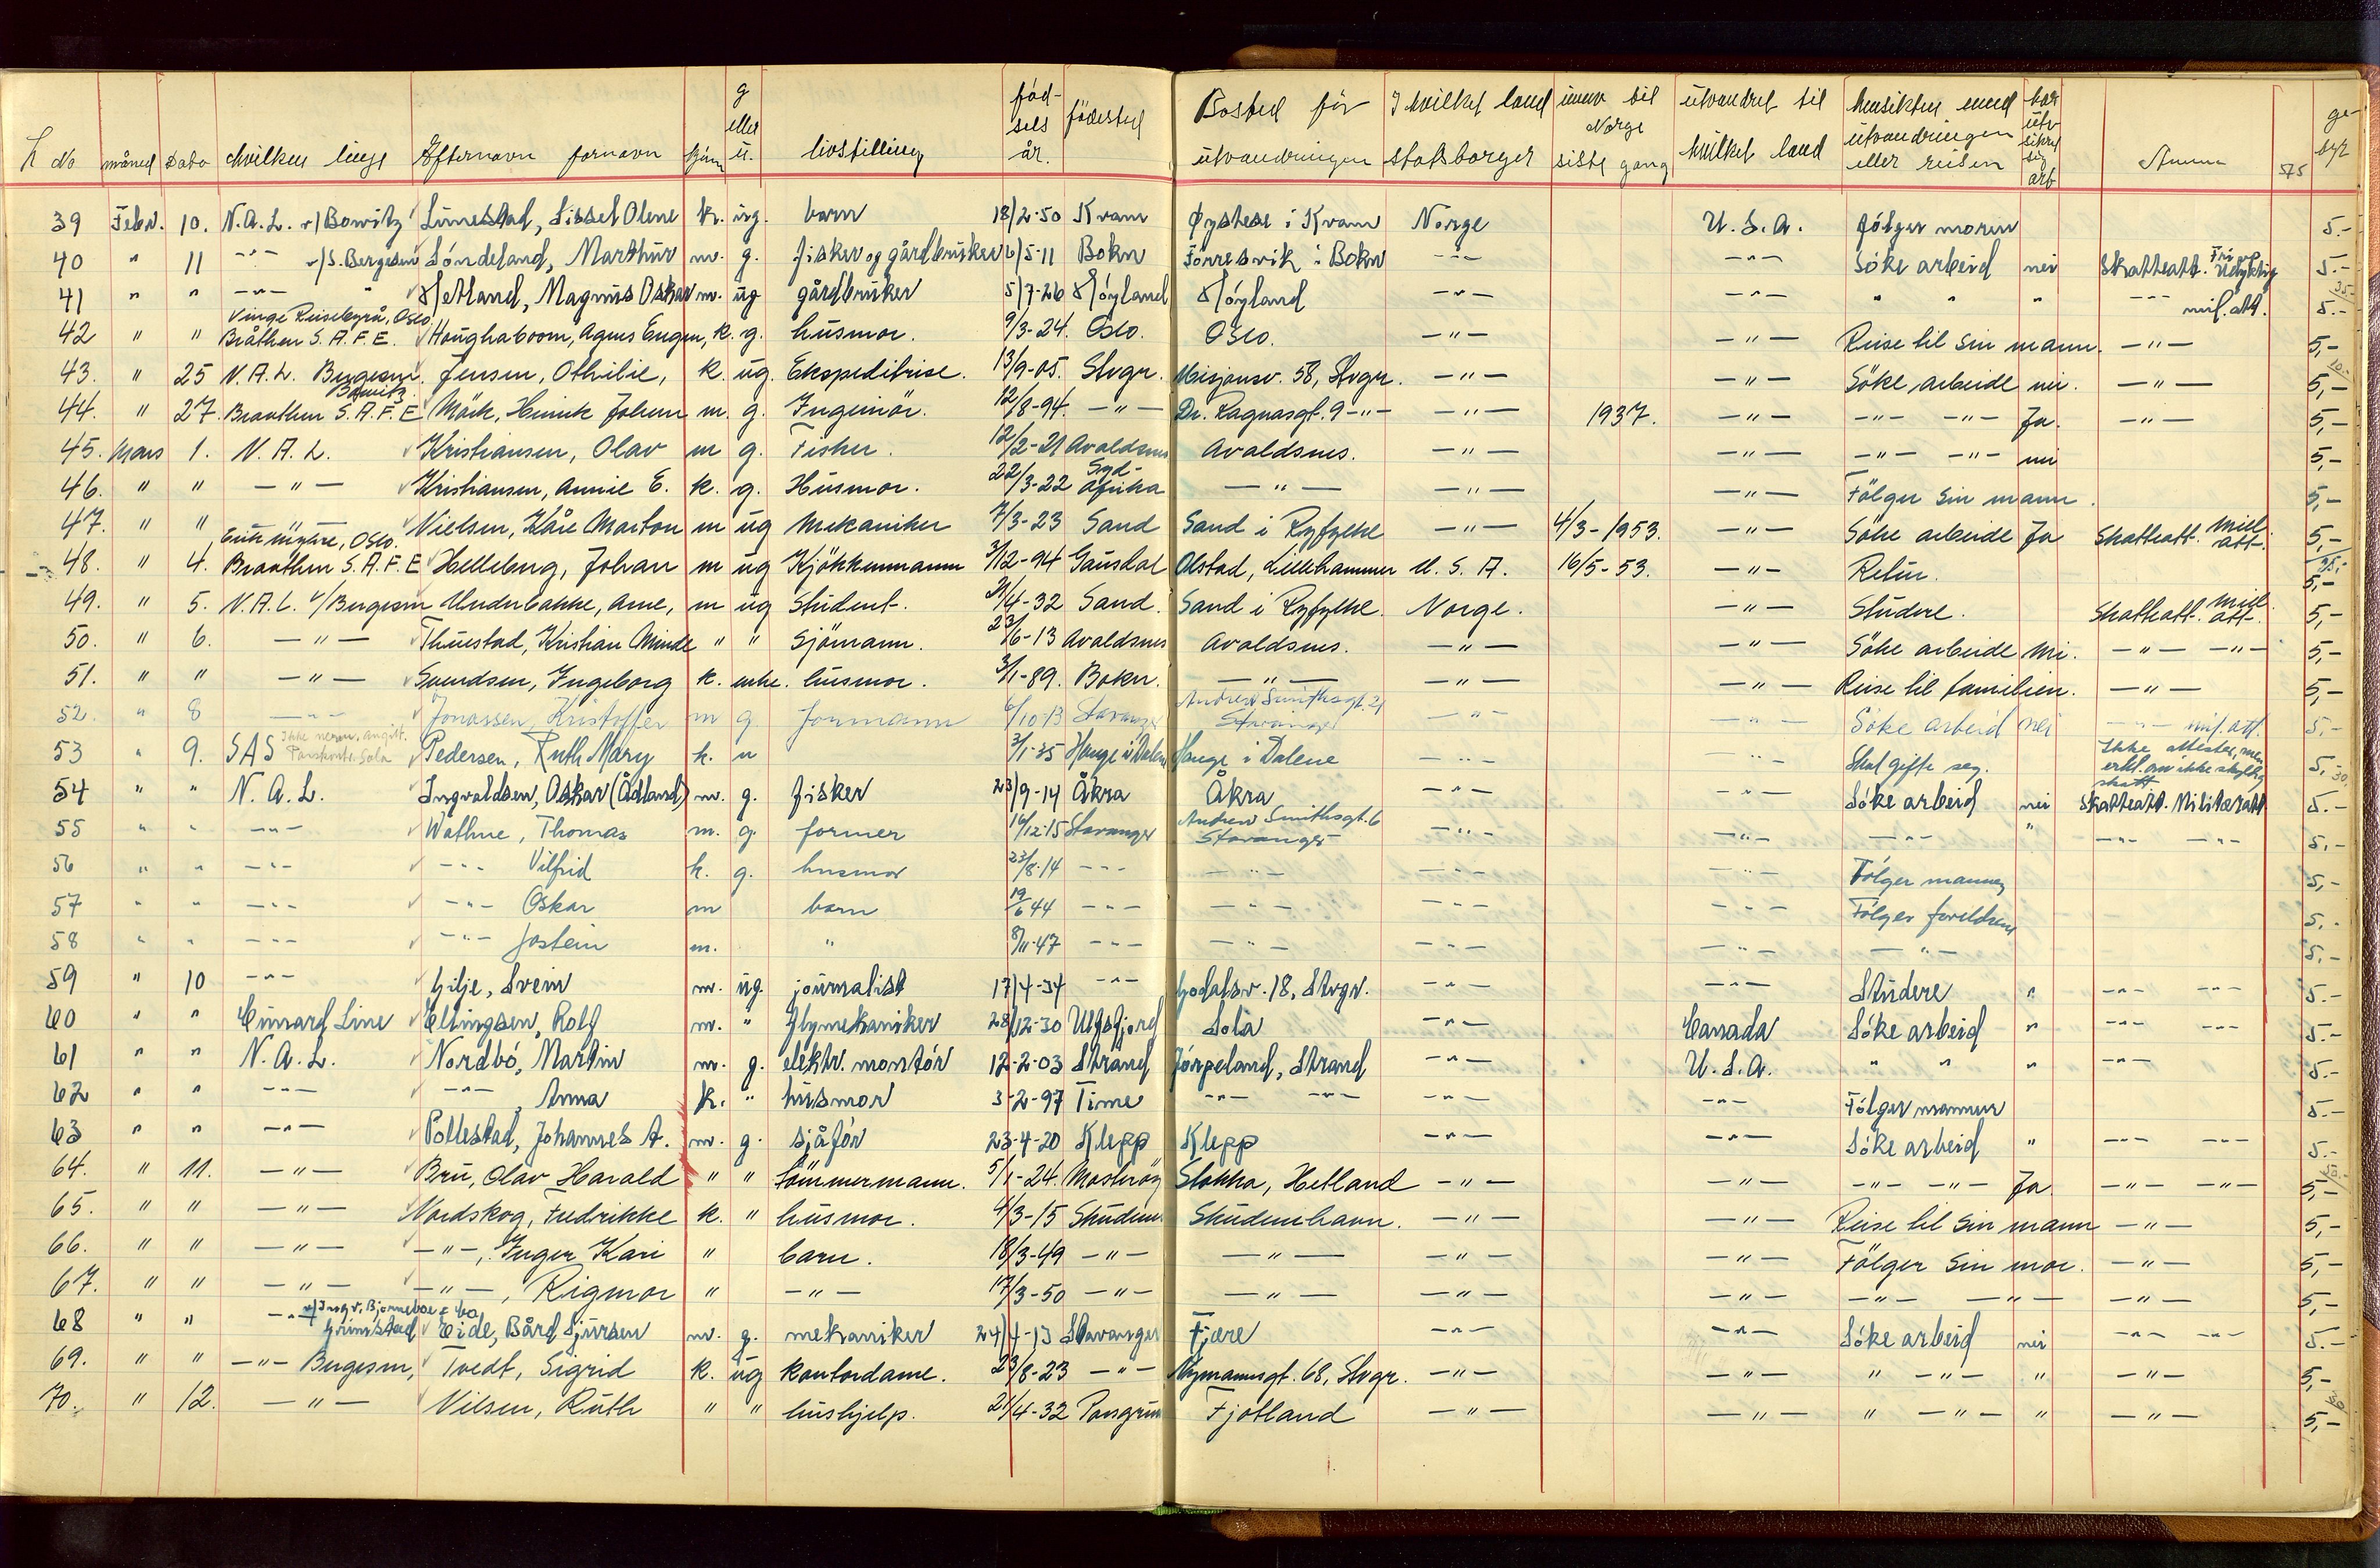 L No måned Dato hvilken linje Efternavn fornavn kjønn g eller u. livsstilling fødselsår. fødested Bosted før utvandringen I hvilket land statsborger innv. til Norge siste gang utvandret til hvilket land hensikten med utvandringen eller reisen har utv sikret sig arb 575 gebyr
39 Febr. 10. N.A.L. v/Bowitz Limestad, Sissel Olene k. ug. barn 18/2-50 Kvam Øystese i Kvam Norge U.S.A. følger moren 5.-
40 " 11 -"- v/S. Bergesen Søndeland, Marthur m. g. fisker og gårdbruker 6/5-11 Bokn Førresvik i Bokn -"- -"- Søke arbeid nei Skatteatt. Udyktig 5.-
41 " " -"- " Hetland, Magnus Oskar m. ug gårdbruker 5/7-26 Høyland Høyland -"- -"- " " " -"- mil. att. 5.- 35-
42 " " Vinge Reisebyrå, Oslo Bråthen S.A.F.E. Houghaboom, Agnes Eugen, k. g. husmor. 9/3-24. Oslo. Oslo. -"- -"- Reise til sin mann. -"- 5,-
43. " 25 N.A.L. Bergesen. Jensen, Othilie, k. ug. Ekspeditrise. 13/9-05. Stvgr. Misjonsv. 58, Stvgr. -"- -"- Söke arbeide nei. -"- 5,- 10.-
44. " 27. Bowitz Braathen S.A.F.E Mörk, Henrik Johan m. g. Ingeniör. 12/8-94. -"- Dr. Ragnasgt. 9 -"- -"- 1937. -"- -"- -"- Ja. -"- 5,-
45. Mars 1. N.A.L. Kristiansen, Olav m g. Fisker. 12/2-21 Avaldsnes Avaldsnes. -"- -"- -"- -"- nei 5,-
46. " " -"- Kristiansen, Annie E. k. g. Husmor. 22/3-22 Syd-Afrika -"- -"- -"- Fölger sin mann. 5,-
47. " " Nielsen, Kåre Marton m ug Mekaniker 7/3-23 Sand Sand i Ryfylke -"- 4/3-1953. -"- Söke arbeide Ja Skatteatt. Mill att. 5,-
48. " 4. Oslo. Braathen S.A.F.E Helleberg, Johan m ug Kjökkenmann 3/12-94 Gausdal Olstad, Lillehammer U.S.A. 16/5-53. -"- Retur. 5,-
49. " 5. N.A.L. v/Bergesen Underbakke, Arne, m ug Student. 21/4-32 Sand. Sand i Ryfylke. Norge. -"- Studere. Skatteatt. Mill. att. 5,-
50. " 6. -"- Thuestad, Kristian Minde " " Sjömann. 23/6-13 Avaldsnes Avaldsnes. -"- -"- Söke arbeide Nei. -"- -"- 5,-
51. " " -"- Svendsen, Ingeborg k. enke. husmor. 3/1-89. Bokn. -"- -"- -"- Reise til familien. -"- 5,-
52. " 8 -"- Jonassen, Kristoffer m g. formann 6/10-13 Stavanger Andrew Smithsgt. 21 Stavanger -"- -"- Søke arbeid nei -"- mil. att. 5,-
53 " 9. SAS Ikke nerm. angitt. Transkontr. Sola Pedersen, Ruth Mary k. u 3/1-35 Hauge i Dalene Hauge i Dalene -"- -"- Skal gifte seg. Ikke attester, men erkl. om ikke skyldig skatt 5,- 30,
54 " " N.A.L. Ingvaldsen, Oskar (Ådland) m. g. fisker 23/9-14 Åkra Åkra -"- -"- Søke arbeid nei Skatteatt. Militæratt 5.-
55 " " -"- Wathne, Thomas m. g. former 16/12-15 Stavanger Andrew Smithsgt. 6 Stavanger -"- -"- -"- " -"- -"- 5,-
56 " " -"- -"- Vilfrid k. g. husmor 23/8-14 -"- -"- -"- -"- Følger mannen 5,-
57 " " -"- -"- Oskar m barn 19/6 44 -"- -"- -"- -"- Følger foreldrene 5.-
58 " " -"- -"- Jostein m. " 8/11-47 -"- -"- -"- -"- -"- 5,-
59 " 10 -"- Gilje, Svein m. ug. journalist 17/4-34 -"- Godalsv. 18, Stvgr. -"- -"- Studere " -"- -"- 5.-
60 " " Cunard Line Ellingsen, Rolf m. " flymekaniker 28/12-30 Ulfsfjord Sola -"- Canada Søke arbeid " -"- -"- 5.-
61 " " N.A.L. Nordbö, Martin m. g. elektr. montör 12-2-03 Strand Jørpeland, Strand -"- U.S.A. " " " -"- 5.-
62 " " -"- -"-, Anna k. " husmor 3-2-97 Time -"- -"- -"- -"- Følger mannen 5.-
63 " " -"- Pollestad, Johannes A. m. g. sjåför 23-4-20 Klepp Klepp -"- -"- Søke arbeid " -"- -"- 5.-
64. " 11. -"- Bru, Olav Harald " " tömmermann. 5/1-24. Mosterøy Stokka, Hetland -"- -"- -"- -"- Ja -"- -"- 5,-
65. " " -"- Nordskog, Fredrikke k. " husmor. 4/3-15 Skudenes Skudeneshavn. -"- -"- Reise til sin mann -"- 5,-
66. " " -"- -"-, Inger Kari " barn. 18/3-49 -"- -"- -"- -"- Fölger sin mor. -"- 5,-
67. " " -"- -"-, Rigmor " -"- 17/3-50 -"- -"- -"- -"- -"- -"- -"- 5,-
68 " " -"- v/Ingv. Bjørneboe & Co Grimstad Eide, Bård Sjursen m. g. mekaniker 24/4-13 Stavanger Fjære -"- -"- Søke arbeid nei -"- -"- 5.-
69. " " -"- Bergesen, Tvedt, Sigrid k. ug kontordame. 23/8-23 -"- Nymannsgt. 68, Stvgr. -"- -"- " -"- " -"- 5,-
70. " 12. -"- Nilsen, Ruth " " hushjelp. 21/4-32 Porsgrunn Fjotland -"- -"- " -"- " -"- 5,-